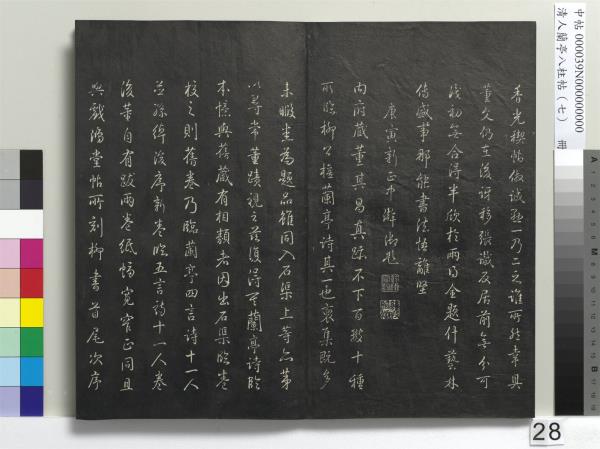 中帖 000039N000000000
清人蘭亭八柱帖（七） 冊
香光稧帖倣誠懸一乃二之誰所然幸具
董文仍在後訝移張識反居前無分可
淺初無合得半欣於兩得全題什藝林
傳盛事那能書法悟離堅
庚寅新正中澣御題
內府藏董其昌真跡不下百數十種
所臨柳公權蘭亭詩其一也裒集既多
未暇悉為題品雖同入石渠上等亦第
以尋常董蹟視之茲復得其蘭亭詩臨
本憶與舊藏有相類者因出石渠臨卷
校之則舊卷乃臨蘭亭四言詩十一人
並孫綽後序新卷臨五言詩十一人卷
後董自有跋兩卷紙幅寬窄正同且
與戲鴻堂帖所刻柳書首尾次序
28